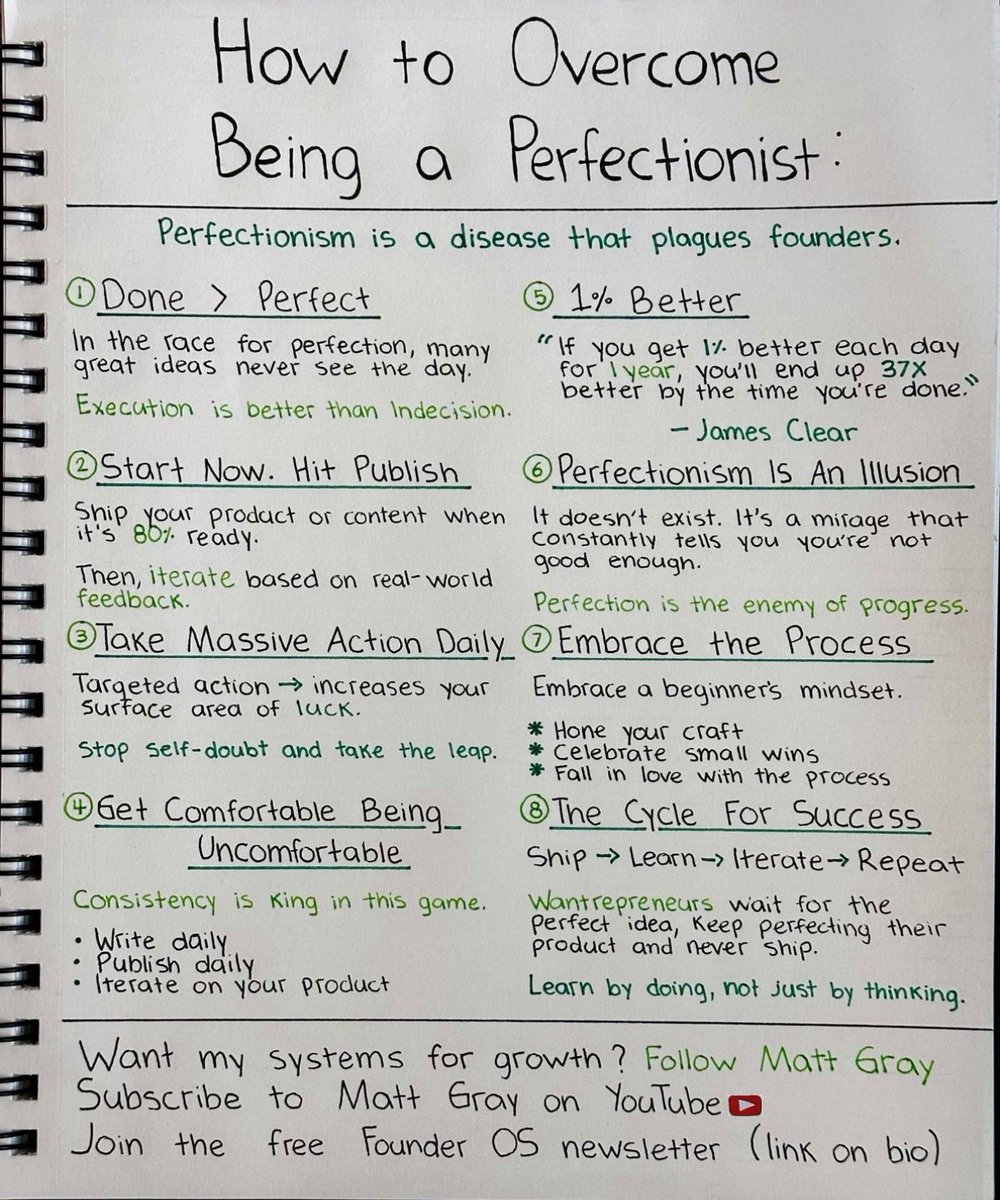 How to Overcome
Being a Perfectionist:
Perfectionism is a disease that plagues founders.
① Done > Perfect
In the race for perfection, many
great ideas never see the day.
Execution is better than Indecision.
② Start Now. Hit Publish
Ship your product or content when
it's 80% ready.
Then, iterate based on real-world
feedback.
③ Take Massive Action Daily
Targeted action → increases your
surface area of luck.
Stop self-doubt and take the leap.
④ Get Comfortable Being
Uncomfortable
Consistency is King in this game.
• Write daily
• Publish daily
• Iterate on your product
⑤ 1% Better
"If you get 1% better each day
for 1 year, you'll end up 37X
better by the time you're done."
- James Clear
⑥ Perfectionism Is An Illusion
It doesn't exist. It's a mirage that
constantly tells you you're not
good enough.
Perfection is the enemy of progress.
⑦ Embrace the Process
Embrace a beginner's mindset.
* Hone your craft
* Celebrate small wins
* Fall in love with the process
⑧ The Cycle For Success
Ship → Learn → Iterate → Repeat
Wantrepreneurs wait for the
perfect idea, Keep perfecting their
product and never ship.
Learn by doing, not just by thinking.
Want my systems for growth? Follow Matt Gray
Subscribe to Matt Gray on YouTube
Join the free Founder OS newsletter (link on bio)